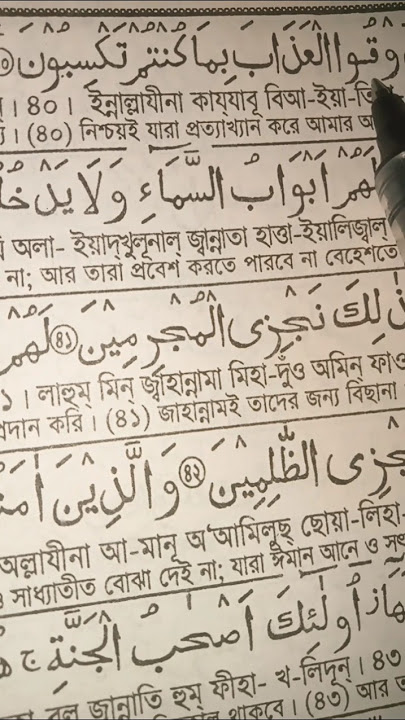 وقوا العذاب بما كنتم تكسبون
। ৪০। ইন্নাল্লাযীনা কায্যাবূ বিআ-ইয়া-তি
। (৪০) নিশ্চয়ই যারা প্রত্যাখ্যান করে আমার
لهم ابواب السماء ولا يدخل
অলা- ইয়াদ্খুলূনাল্ জ্বান্নাতা হাত্তা-ইয়ালিজ্বাল্
না; আর তারা প্রবেশ করতে পারবে না বেহেশতে
ذلك نجزى المجرمين ﴿٤١﴾ لهم
। লাহুম্ মিন্ জ্বাহান্নামা মিহা-দুঁও অমিন্ ফাও
প্রদান করি। (৪১) জাহান্নামই তাদের জন্য বিছানা
نجزى الظلمين ﴿٤٢﴾ والذين امنو
অল্লাযীনা আ-মানূ অ'আমিলুছ্ ছোয়া-লিহা-
সাধ্যাতীত বোঝা দেই না; যারা ঈমান আনে ও
اولئك اصحب الجنة ج
জান্নাতি হুম্ ফীহা- খ-লিদূন্। ৪৩
থাকবে। (৪৩) আর